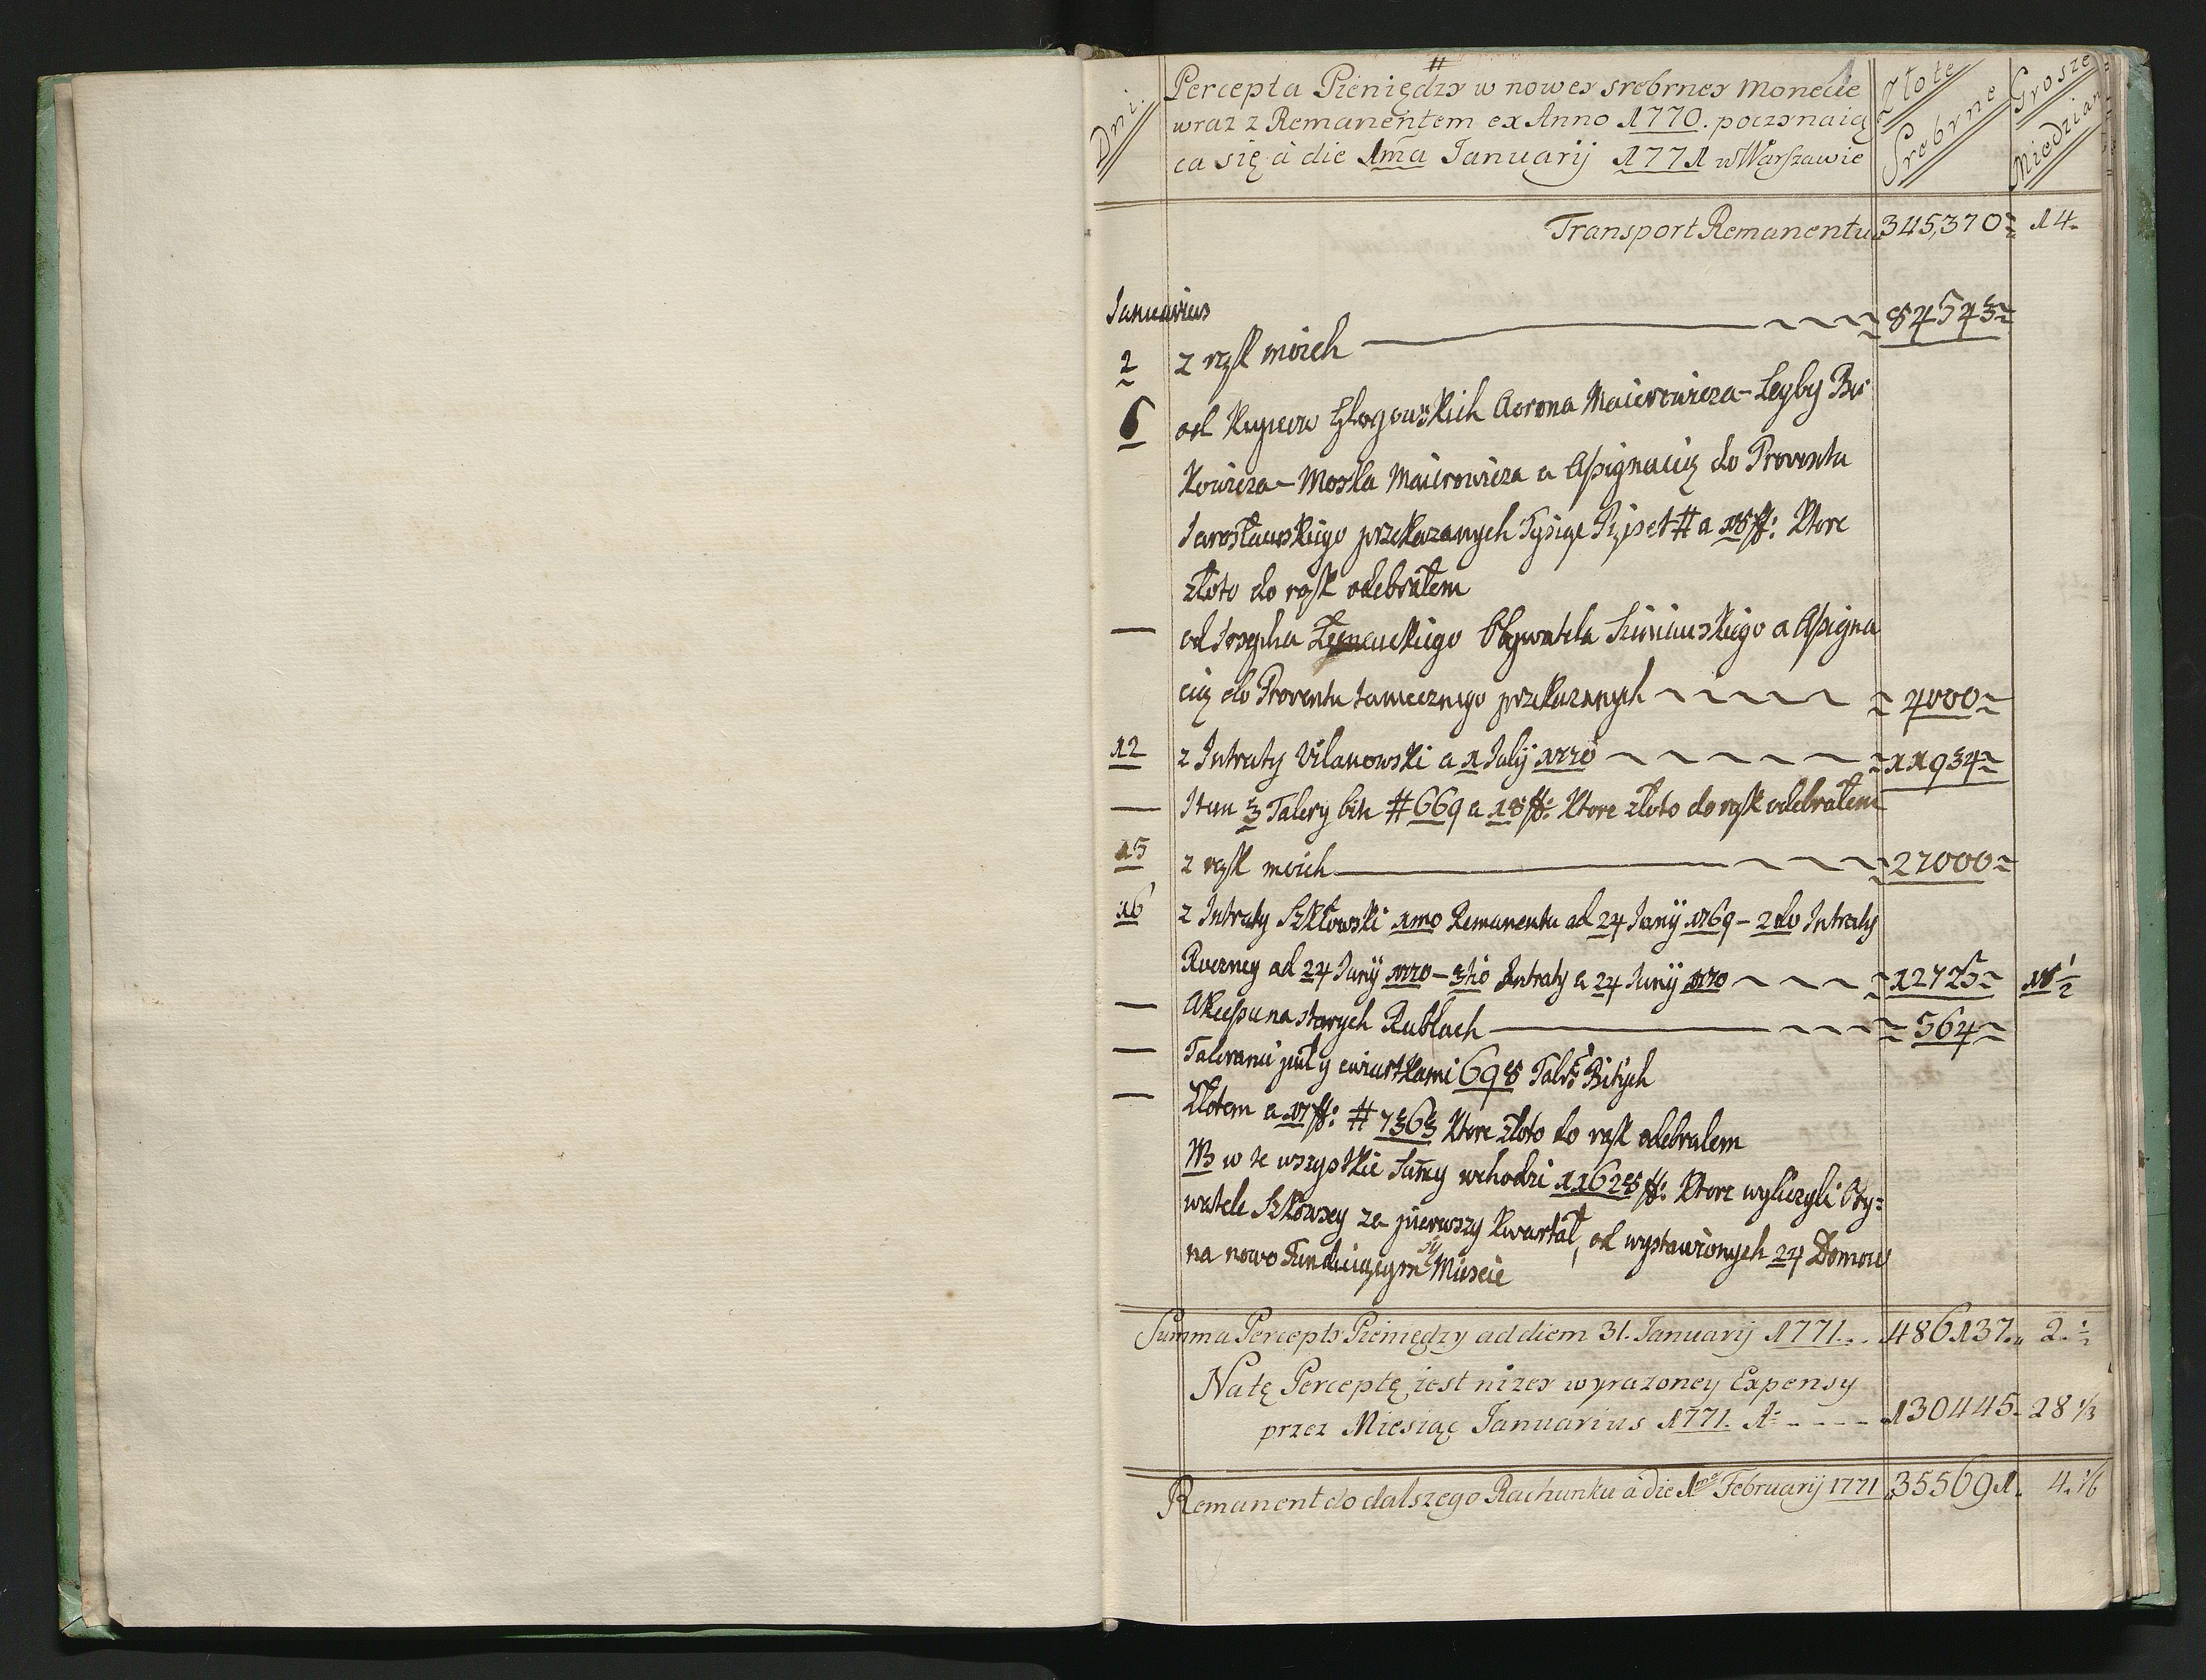 Dni.
Percepta Pieniędzy w nowey srebrney Monecie
wraz z Remanentem ex Anno 1770. poczynaią
ca się à die 1ma Ianuarij 1771 w Warszawie
Złote Srebrne
Grosze Miedzian
Transport Remanentu 345,370 14.
Ianuarius
2 z rąk moich 84543
6 od Kupcow Głogowskich Aorona Maierowicza - Leyby Be
Kowicza - Moska Maierowicza a Assignacią do Proventu
Iarosławskiego przekazanych Tysiąc Pięset # a 18 ff: Ktore
złoto do rąk odebrałem
— od Iosepha Obywatela Sieniawskiego a Assigna
cią do Proventu tamecznego przekazanych 4000
12 z Intraty Vilanowski a 1 Iulij 1770 11934
— Item 3 Talery bite # 669 a 18 ff: Ktore złoto do rąk odebrałem
15 z rąk moich 27000
16 z Intraty Szkłowski 1mo Remanentu ad 24 Iunij 1769 - 2do Intraty
Roczney ad 24 Iunij 1770 - 3tio Intraty a 24 Iunij 1770 12725 18 1/2
— Akcessu na starych Rublach 564
— Talerami puł y cwiartkami 698 Talr: Bitych
— Złotem a 17 ff: # 7363 Ktore złoto do rąk odebralem
NB w te wszystkie Sumy wchodzi 11628 ff: Ktore wyliczyli Oby=
watele Szkłowscy za pierwszy Kwartał, od wystawionych 24 Domow
na nowo Funduiącym się Miescie
Summa Percepty Pieniędzy ad diem 31. Ianuarij 1771. 486137. 2. 1/2
Na tę Perceptę iest nizey wyrazoney Expensy
przez Miesiąc Ianuarius 1771. A: 130445. 28 1/3
Remanent do dalszego Rachunku à die 1ma Februarij 1771 355691. 4. 1/6